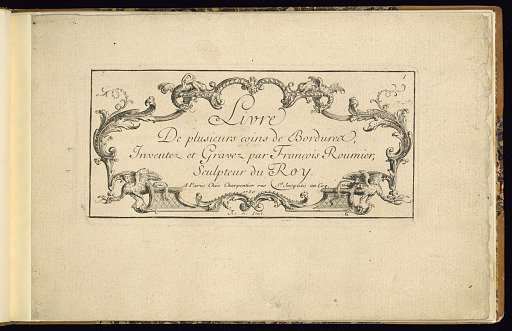 Livre
De plusieurs coins de Bordures,
Inventez et Gravez par François Roumier,
Sculpteur du Roy.
A Paris Chez Charpentier rue St. Jacques au Coq